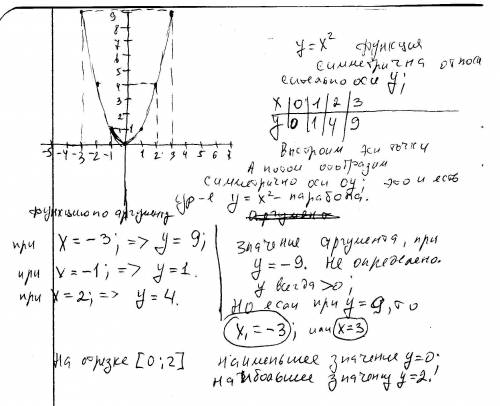 y = x² функция
симметрична относи
сительно оси y;
x | 0 | 1 | 2 | 3
y | 0 | 1 | 4 | 9
Выстроим эти точки
А потом отобразим
симметрично оси oy; это и есть
ур-е y = x² - парабола.
9
8
7
6
5
4
3
2
1
-5 -4 -3 -2 -1 0 1 2 3 4 5 6 7 8
Функцию по аргументу
при x = -3; => y = 9;
при x = -1; => y = 1.
при x = 2; => y = 4.
Значение аргумента, при
y = -9. не определено.
y всегда > 0;
Но если при y = 9, то
x₁ = -3; или x = 3
На отрезке [0; 2] наименьшее значение y = 0.
наибольшее значение y = 2.!